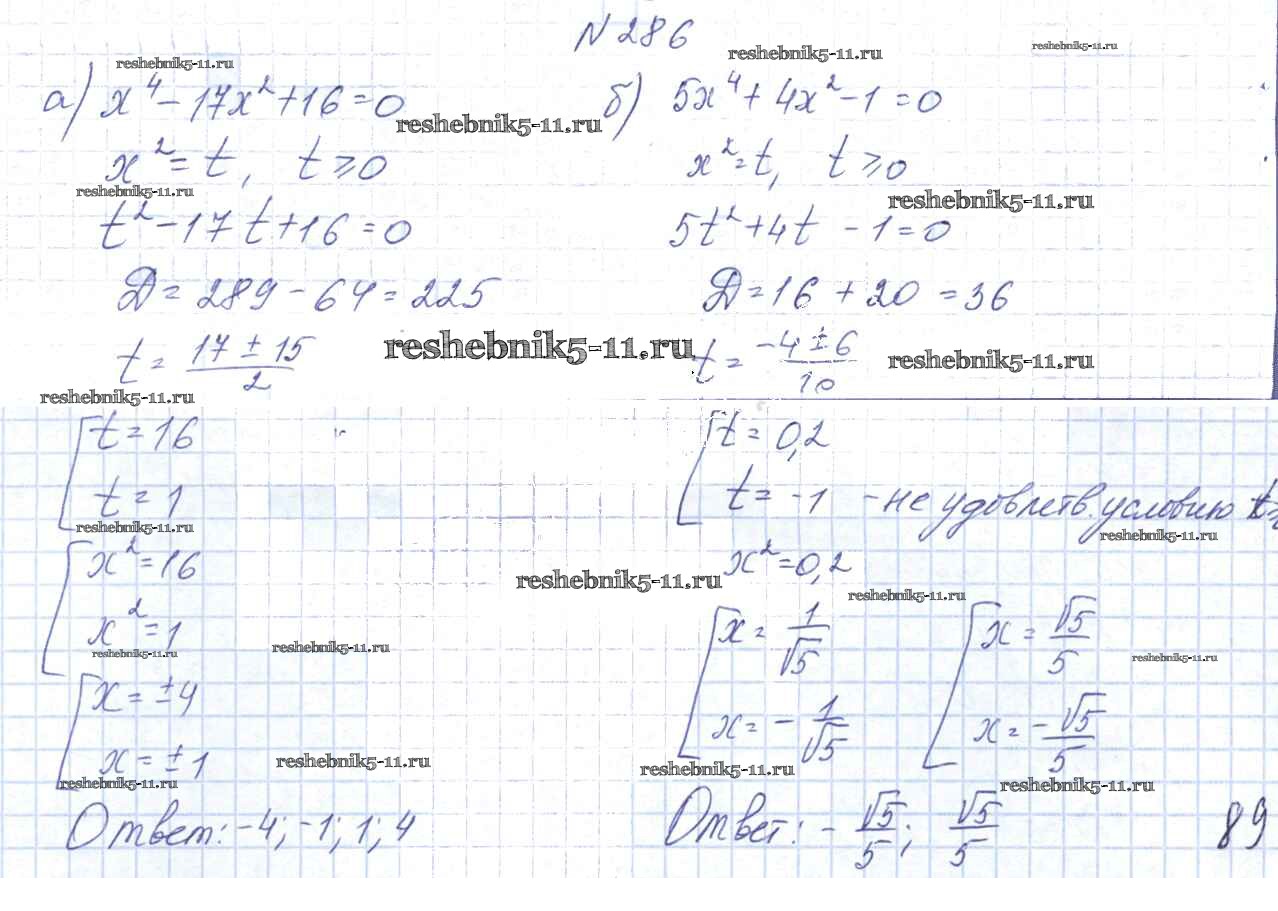 N 286
reshebnik5-11.ru
reshebnik5-11.ru
reshebnik5-11.ru
а) x⁴ - 17x² + 16 = 0
reshebnik5-11.ru
x² = t, t ≥ 0
reshebnik5-11.ru
t² - 17t + 16 = 0
Д = 289 - 64 = 225
t = (17 ± 15)/2
reshebnik5-11.ru
reshebnik5-11.ru
[ t = 16
t = 1
reshebnik5-11.ru
[ x² = 16
x² = 1
reshebnik5-11.ru
reshebnik5-11.ru
[ x = ±4
x = ±1
reshebnik5-11.ru
reshebnik5-11.ru
Ответ: -4; -1; 1; 4
б) 5x⁴ + 4x² - 1 = 0
x² = t, t ≥ 0
reshebnik5-11.ru
5t² + 4t - 1 = 0
Д = 16 + 20 = 36
t = (-4 ± 6)/10
reshebnik5-11.ru
[ t = 0,2
t = -1 - не удовлетв. условию t ≥
reshebnik5-11.ru
x² = 0,2
reshebnik5-11.ru
reshebnik5-11.ru
[ x = 1/√5 [ x = √5/5
reshebnik5-11.ru
x = -1/√5 x = -√5/5
reshebnik5-11.ru
reshebnik5-11.ru
Ответ: -√5/5; √5/5
89